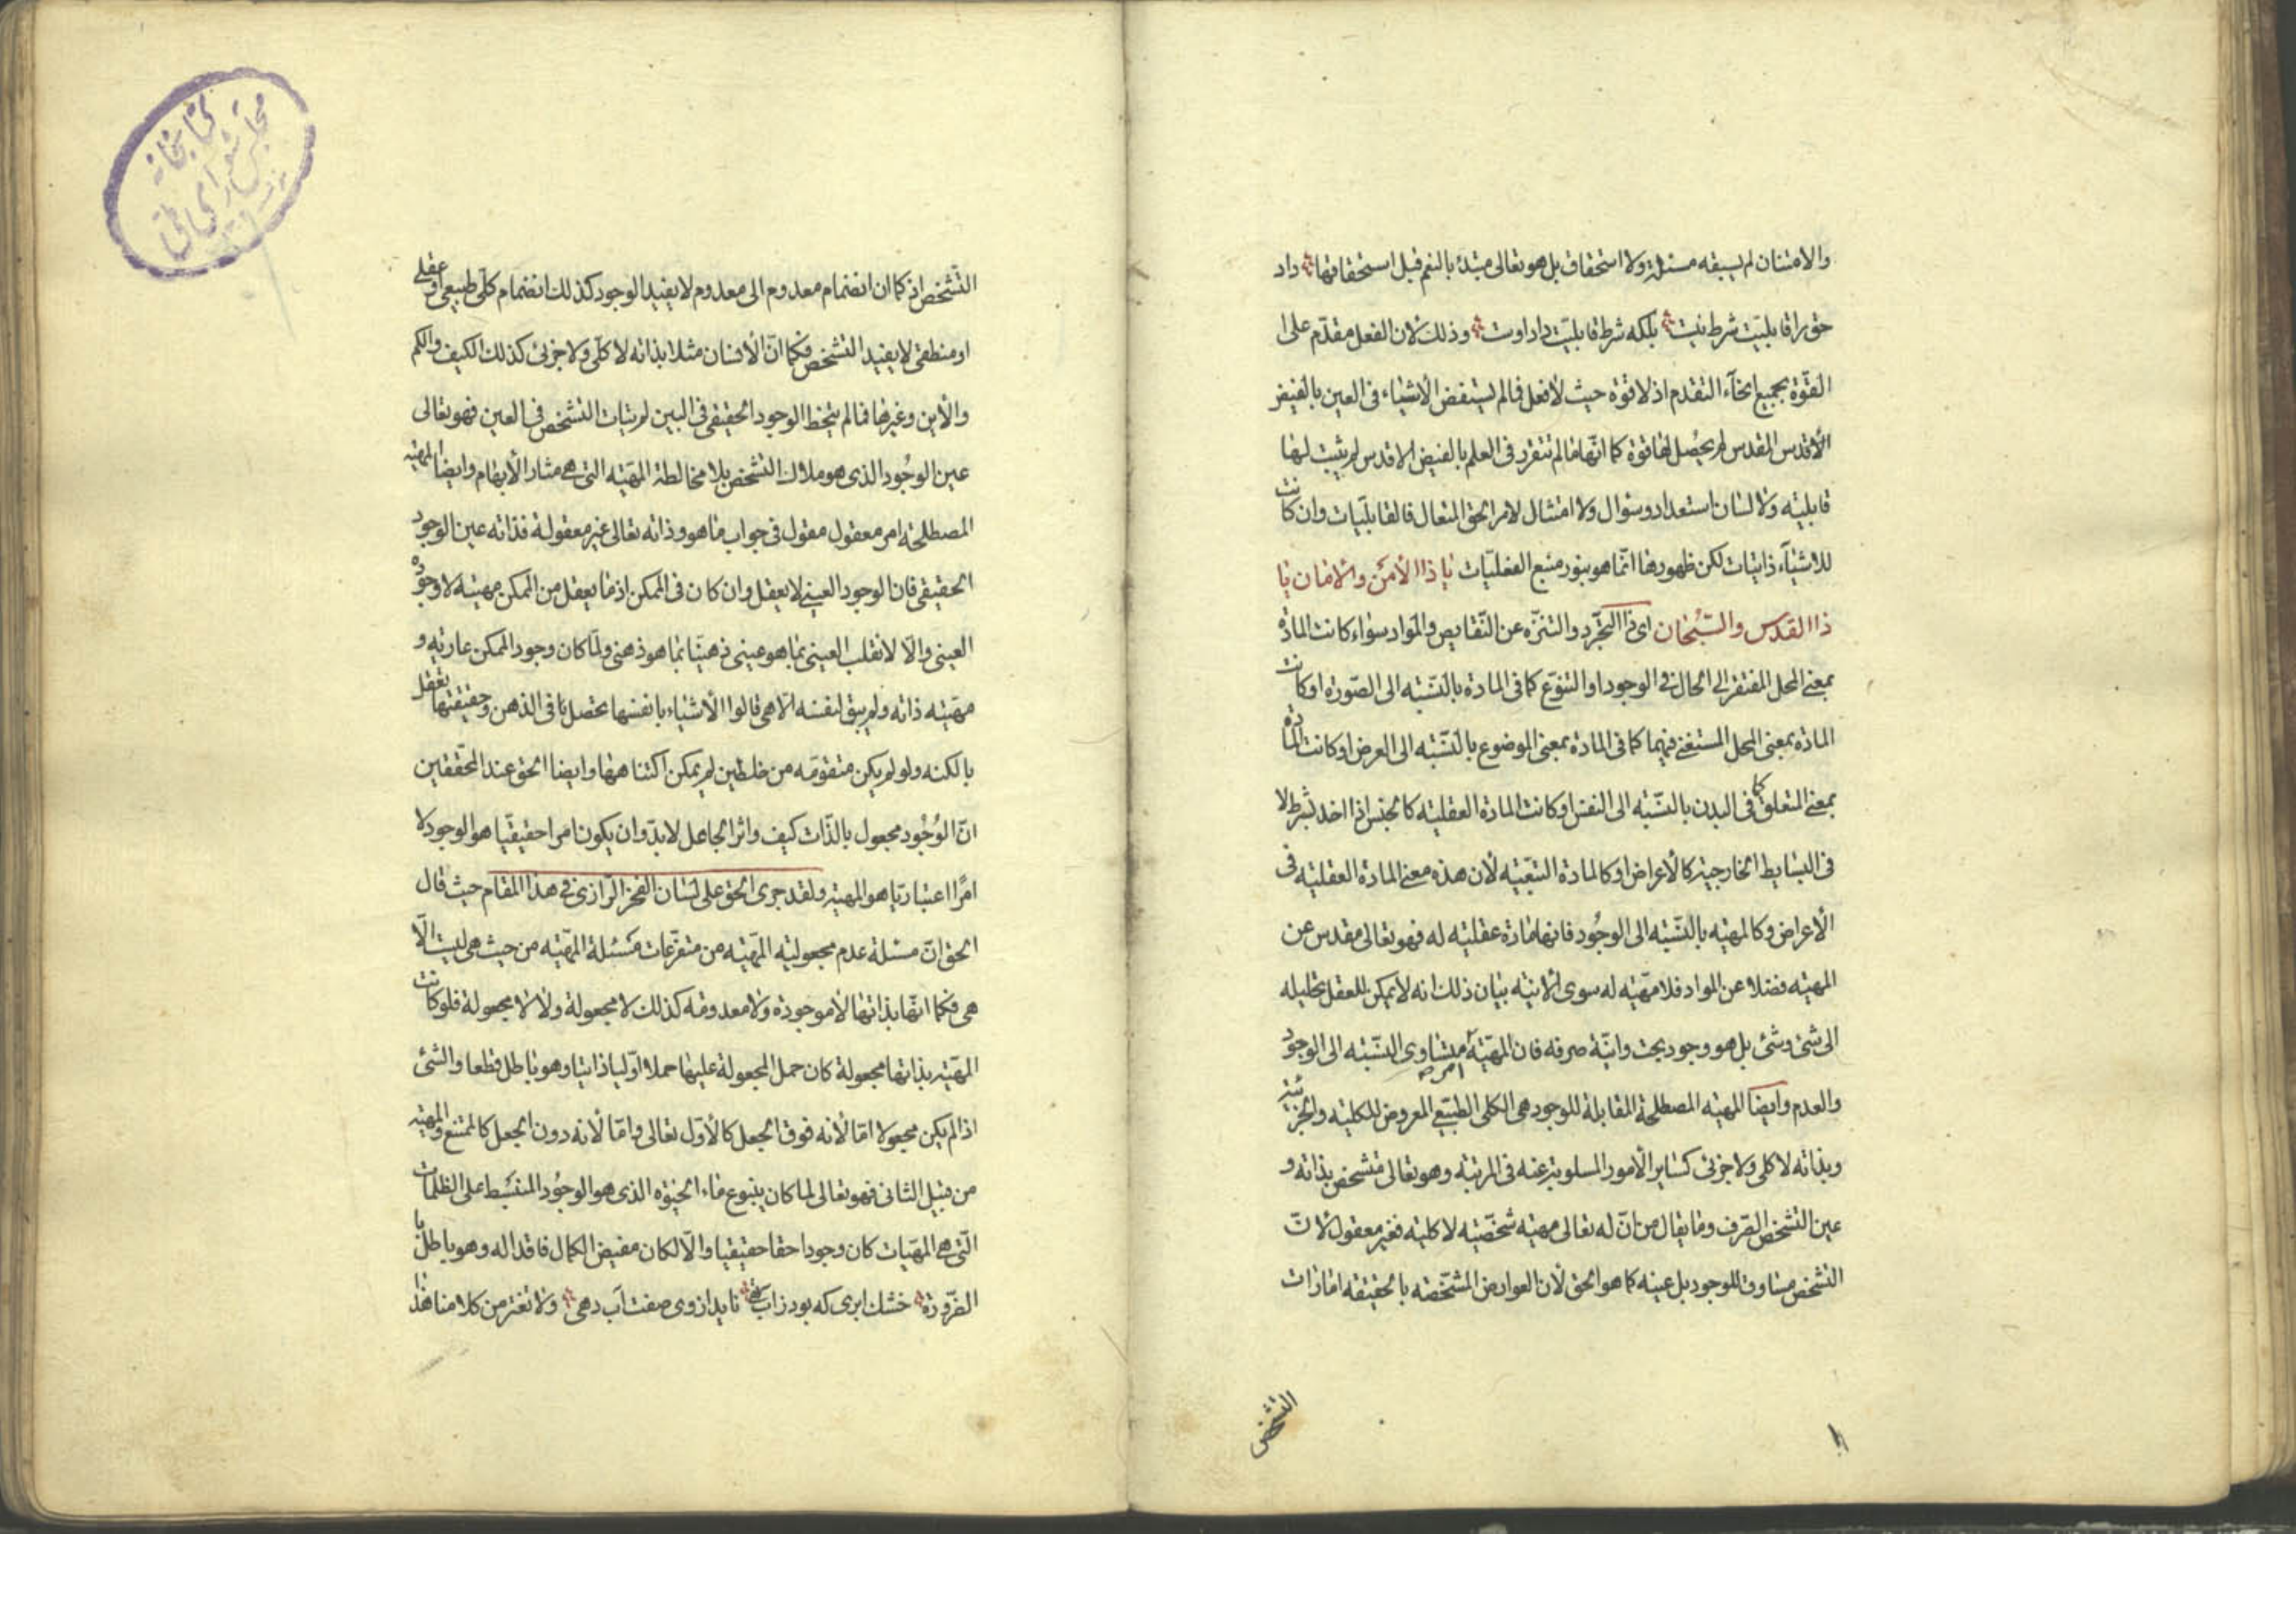 والامتنان لم يسبقه مسئلة ولا استحقاق بل هو تعالى مبتدئ بالنعم قبل استحقاقها داد
حق را قابليّت شرط نيست بلكه شرط قابليّت داد اوست وذلك لان الفعل مقدّم على ا
القوّة بجميع انحاء التقدم اذ لا قوّة حيث لا فعل فما لم يستفض الاشياء فى العين بالفيض
الاقدس المقدس لم يحصل لها قوة كما انّها ما لم تتقرر فى العلم بالفيض الاقدس لم يثبت لها
قابليته ولا لسان استعداد وسؤال ولا امتثال لامر الحق المتعال فالقابليّات وان كانت
للاشياء ذاتيات لكن ظهورها انّما هو بنور منبع الفعليّات يا ذا الأمن والامان يا
ذا القدس والسّبحان اى ذا التجرّد والتنزّه عن النّقايص والمواد سواء كانت المادة
بمعنى المحل المفتقر الى الحال فى الوجود او التنوّع كما فى المادة بالنسّبته الى الصّورة او كانت
المادة بمعنى المحل المستغنى فيهما كما فى المادة بمعنى الموضوع بالنسّبته الى العرض او كانت المادة
بمعنى المتعلق كما فى البدن بالنسّبته الى النفس او كانت المادة العقليته كالجنس اذا اخذ بشرط لا
فى البسايط الخارجية كالأعراض او كالمادة التبعّيته لأن هذه معنى المادة العقليته فى
الأعراض وكالمهيّته بالنسّبته الى الوجُود فانها مادة عقليته له فهو تعالى مقدس عن
المهيّته فضلا عن المواد فلا مهيّته له سوى الانيّته بيان ذلك انه لا يمكن للعقل تحليله
الى شئ وشئ بل هو وجود بحت وانيّة صرفه فان المهيّة امر متساوى النسّبته الى الوجود
والعدم وايضا المهيّته المصطلحة المقابلة للوجود هى الكلى الطبيعى المعروض للكليته والجزئيته
وبذاته لا كلى ولا جزئى كساير الأمور المسلوبة عنه فى المرتبته وهو تعالى متشخص بذاته و
عين التشخص الصّرف وما يقال من انّ له تعالى مهيّته شخصّيته لا كليته فغير معقول لأنّ
التشخص مساوق للوجود بل عينه كما هو الحق لأن العوارض المشخّصته بالحقيقه امارات
التشخص
التّشخص اذ كما ان انضمام معدوم الى معدوم لا يفيد الوجود كذلك انضمام كلّى طبيعى او عقلى
او منطقى لا يفيد التشخص فكما انّ الأنسان مثلا بذاته لا كلّى ولا جزئى كذلك الكيف والكم
والأين وغيرها فما لم يتخط الوجود الحقيقى فى البين لم يتأت التشخص فى العين فهو تعالى
عين الوجُود الذى هو ملاك التشخص بلا مخالطة المهيّته التى هى مثار الأبهام وايضا المهيّته
المصطلحته امر معقول مقول فى جواب ما هو وذاته تعالى غير معقولة فذاته عين الوجود
الحقيقى فان الوجود العينى لا يعقل وان كان فى الممكن اذ ما يعقل من الممكن مهيّته لا وجوده
العينى والّا لانقلب العينى بما هو عينى ذهنيّا بما هو ذهنى ولمّا كان وجود الممكن عاريّه و
مهيّته ذاته ولم يبق لنفسه الّا هى قالوا الأشياء بانفسها تحصل فى الذهن وحقيقتها تعقل
بالكنه ولو لم يكن متقومّه من خلطين لم يمكن اكتناهها وايضا الحق عند المحقّقين
انّ الوُجُود مجعول بالذّات كيف واثر الجاعل لا بدّ وان يكون امرا حقيقيّا هو الوجود لا
امرًا اعتباريّا هو المهيّة ولقد جرى الحق على لسان الفخر الرّازى فى هذا المقام حيث قال
الحق انّ مسئلة عدم مجعوليّته المهيّته من متفرّعات مسئلة المهيّته من حيث هى ليست الّا
هى فكما انّها بذاتها لا موجودة ولا معدومه كذلك لا مجعولة ولا لا مجعولة فلو كانت
المهيّته بذاتها مجعولة كان حمل المجعولة عليها حملا اوّليا ذاتيا وهو باطل قطعا والشئ
اذا لم يكن مجعولا امّا لأنه فوق الجعل كالأوّل تعالى وامّا لأنه دون الجعل كالممتنع والمهيّته
من قبيل الثانى فهو تعالى لما كان ينبوع ماء الحيوٰه الذى هو الوجُود المنبسط على الظلمات
الّتى هى المهيّات كان وجودا حقا حقيقيا والّا لكان مفيض الكمال فاقدا له وهو باطل با
الضّرورة خشك ابرى كه بود ز آب تهى نايد از وى صفت آب دهى ولا تغتر من كلامنا هذا
كتابخانه
مجلس شوراى ملى